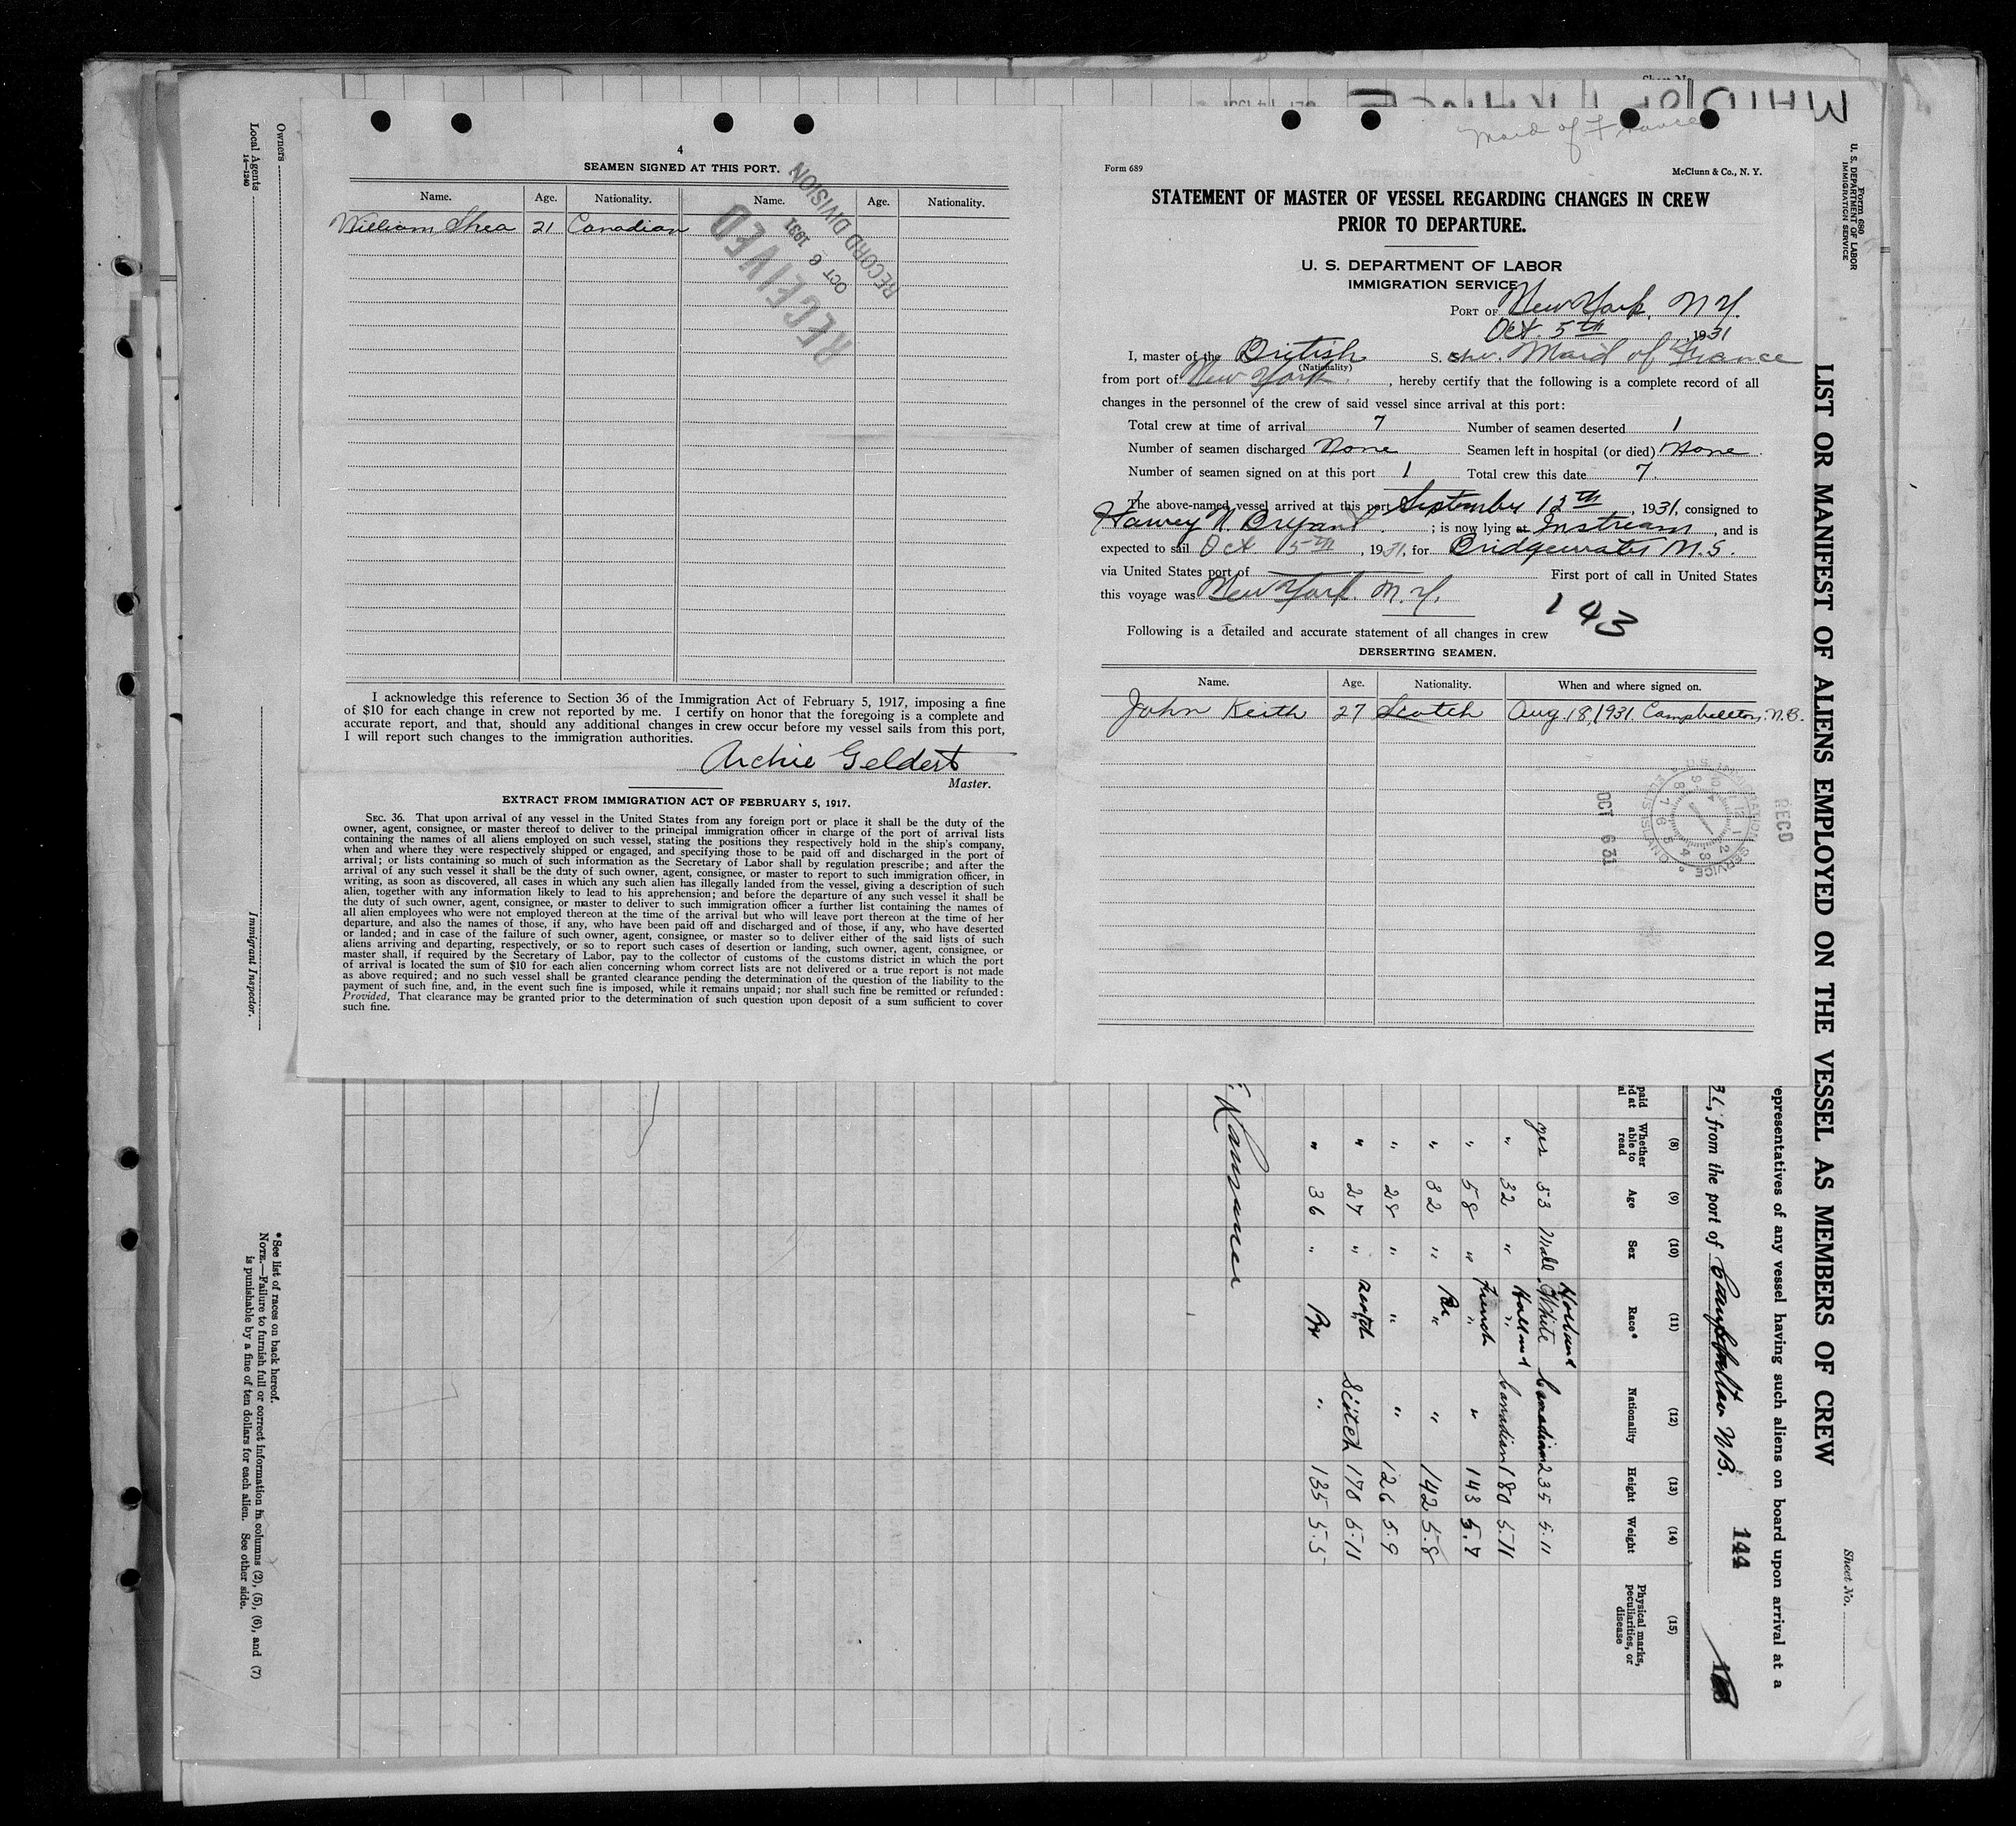 4
SEAMEN SIGNED AT THIS PORT.
Name. Age. Nationality. Name. Age. Nationality.
William Shea 21 Canadian
RECEIVED
OCT 6 1931
RECORD DIVISION
I acknowledge this reference to Section 36 of the Immigration Act of February 5, 1917, imposing a fine
of $10 for each change in crew not reported by me. I certify on honor that the foregoing is a complete and
accurate report, and that, should any additional changes in crew occur before my vessel sails from this port,
I will report such changes to the immigration authorities.
Archie Geldert
Master.
EXTRACT FROM IMMIGRATION ACT OF FEBRUARY 5, 1917.
SEC. 36. That upon arrival of any vessel in the United States from any foreign port or place it shall be the duty of the
owner, agent, consignee, or master thereof to deliver to the principal immigration officer in charge of the port of arrival lists
containing the names of all aliens employed on such vessel, stating the positions they respectively hold in the ship's company,
when and where they were respectively shipped or engaged, and specifying those to be paid off and discharged in the port of
arrival; or lists containing so much of such information as the Secretary of Labor shall by regulation prescribe; and after the
arrival of any such vessel it shall be the duty of such owner, agent, consignee, or master to report to such immigration officer, in
writing, as soon as discovered, all cases in which any such alien has illegally landed from the vessel, giving a description of such
alien, together with any information likely to lead to his apprehension; and before the departure of any such vessel it shall be
the duty of such owner, agent, consignee, or master to deliver to such immigration officer a further list containing the names of
all alien employees who were not employed thereon at the time of the arrival but who will leave port thereon at the time of her
departure, and also the names of those, if any, who have been paid off and discharged and of those, if any, who have deserted
or landed; and in case of the failure of such owner, agent, consignee, or master so to deliver either of the said lists of such
aliens arriving and departing, respectively, or so to report such cases of desertion or landing, such owner, agent, consignee, or
master shall, if required by the Secretary of Labor, pay to the collector of customs of the customs district in which the port
of arrival is located the sum of $10 for each alien concerning whom correct lists are not delivered or a true report is not made
as above required; and no such vessel shall be granted clearance pending the determination of the question of the liability to the
payment of such fine, and, in the event such fine is imposed, while it remains unpaid; nor shall such fine be remitted or refunded:
Provided, That clearance may be granted prior to the determination of such question upon deposit of a sum sufficient to cover
such fine.
Maid of France
Form 689 McClunn & Co., N. Y.
STATEMENT OF MASTER OF VESSEL REGARDING CHANGES IN CREW
PRIOR TO DEPARTURE.
U. S. DEPARTMENT OF LABOR
IMMIGRATION SERVICE
PORT OF New York, N Y.
Oct. 5th 1931
I, master of the British S. Schr. Maid of France
(Nationality)
from port of New York, hereby certify that the following is a complete record of all
changes in the personnel of the crew of said vessel since arrival at this port:
Total crew at time of arrival 7 Number of seamen deserted 1
Number of seamen discharged None Seamen left in hospital (or died) None
Number of seamen signed on at this port 1 Total crew this date 7.
The above-named vessel arrived at this port September 12th, 1931, consigned to
Harvey N. Bryant; is now lying at Instream, and is
expected to sail Oct 5th, 1931, for Bridgewater N.S.
via United States port of First port of call in United States
this voyage was New York. N.Y.
143
Following is a detailed and accurate statement of all changes in crew
DERSERTING SEAMEN.
Name. Age. Nationality. When and where signed on.
John Keith 27 Scotch Aug. 18, 1931. Campbellton, N.B.
OCT 6 31
RECD
MAID OF FRANCE
Form 680
U. S. DEPARTMENT OF LABOR
IMMIGRATION SERVICE
Sheet No.
LIST OR MANIFEST OF ALIENS EMPLOYED ON THE VESSEL AS MEMBERS OF CREW
epresentatives of any vessel having such aliens on board upon arrival at a
31, from the port of Campbellton N.B.
144
(8) (9) (10) (11) (12) (13) (14) (15)
Whether able to read Age Sex Race* Nationality Height Weight Physical marks, peculiarities, or disease
Holland
yes 53 Male White Canadian 235 5.11
" 32 " Holland " Canadian 180 5.11
" 58 " French " " 143 5.7
" 32 " " " 142 5.8
" 28 " " " 126 5.9
" 27 " Scotch 170 5.11
" 36 " " 135 5.5
Owners
Local Agents
14—1240
Immigrant Inspector.
*See list of races on back hereof.
NOTE.—Failure to furnish full or correct information in columns (2), (5), (6), and (7)
is punishable by a fine of ten dollars for each alien. See other side.